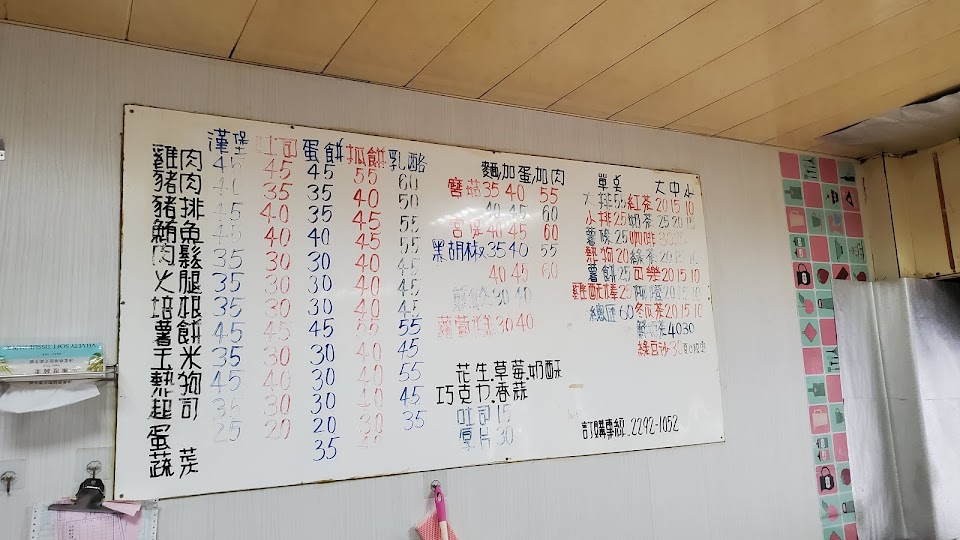 漢堡 吐司 蛋餅 抓餅 乳酪
雞肉 45 45 45 55 60
豬肉 35 35 40 50
豬排 45 40 35 45 55
鮪魚 45 40 40 45 55
肉鬆 35 30 30 40 45
火腿 35 30 30 40 45
培根 35 30 30 40 45
薯餅 45 45 45 55 55
玉米 35 30 30 40 45
熱狗 45 40 40 55
起司 30 30 40 45
蛋 25 20 20 30 35
蔬菜 35
麵 加蛋 加肉
蘑菇 35 40 55
40 45 60
40 45 60
黑胡椒 35 40 55
40 45 60
30 40
蘿蔔糕 30 40
花生.草莓.奶酥
巧克力.香蒜
吐司 15
厚片 30
單點 大 中 小
紅茶 20 15 10
小排 25 奶茶 25 20 15
薯條 25 咖啡
熱狗 20 綠茶 20 15 10
薯餅 25 可樂 20 15 10
雞酥棒 25 20 15 10
總匯 60 冬瓜茶 20 15 10
40 30
綠豆沙
訂購專線.2292-1052
VELVETY SOFT TISSUE